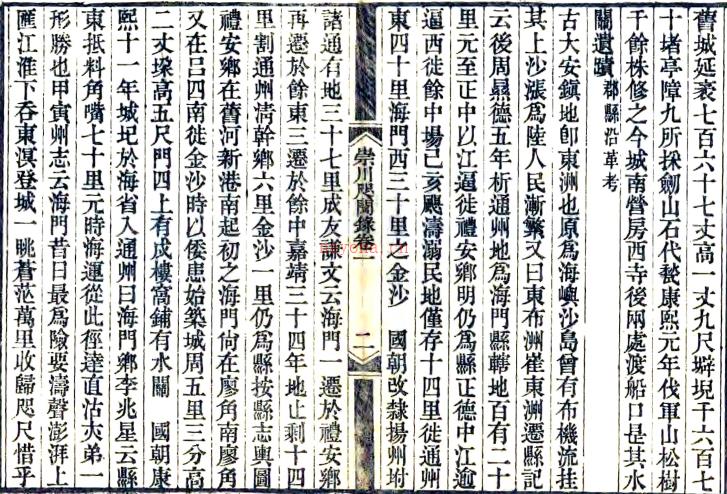 舊城延袤七百六十七丈高一丈九尺辟垷千六百七
十堵亭障九所採劒山石代甃康熙元年伐軍山松樹
千餘株修之今城南營房西寺後兩處渡船口是其水
關遺蹟郡縣沿革考
古大安鎮地卽東洲也原爲海嶼沙島曾有布機流挂
其上沙漲爲陸人民漸繁又曰東布洲崔東洲遷縣記
云後周㬎德五年析通州地爲海門縣轄地百有二十
里元至正中以江逼徙禮安鄉明仍爲縣正德中江逾
逼西徙餘中場己亥颶濤溺民地僅存十四里徙通州
東四十里海門西三十里之金沙 國朝改隸揚州坿
崇川咫聞錄卷一 二
諸通有地三十七里成友謙文云海門一遷於禮安鄉
再遷於餘東三遷於餘中嘉靖三十四年地止剩十四
里割通州淸幹鄉六里金沙一里仍爲縣按縣志輿圖
禮安鄉在舊河新港南起初之海門尙在廖角南廖角
又在吕四南徙金沙時以倭患始築城周五里三分高
二丈垜高五尺門四上有戍樓窩鋪有水關 國朝康
熙十一年城圮於海省入通州曰海門鄉李兆星云縣
東抵料角嘴七十里元時海運從此徑達直沽夾弟一
形勝也甲寅州志云海門昔日最爲險要濤聲澎湃上
匯江淮下吞東溟登城一眺蒼茫萬里收歸咫尺惜乎